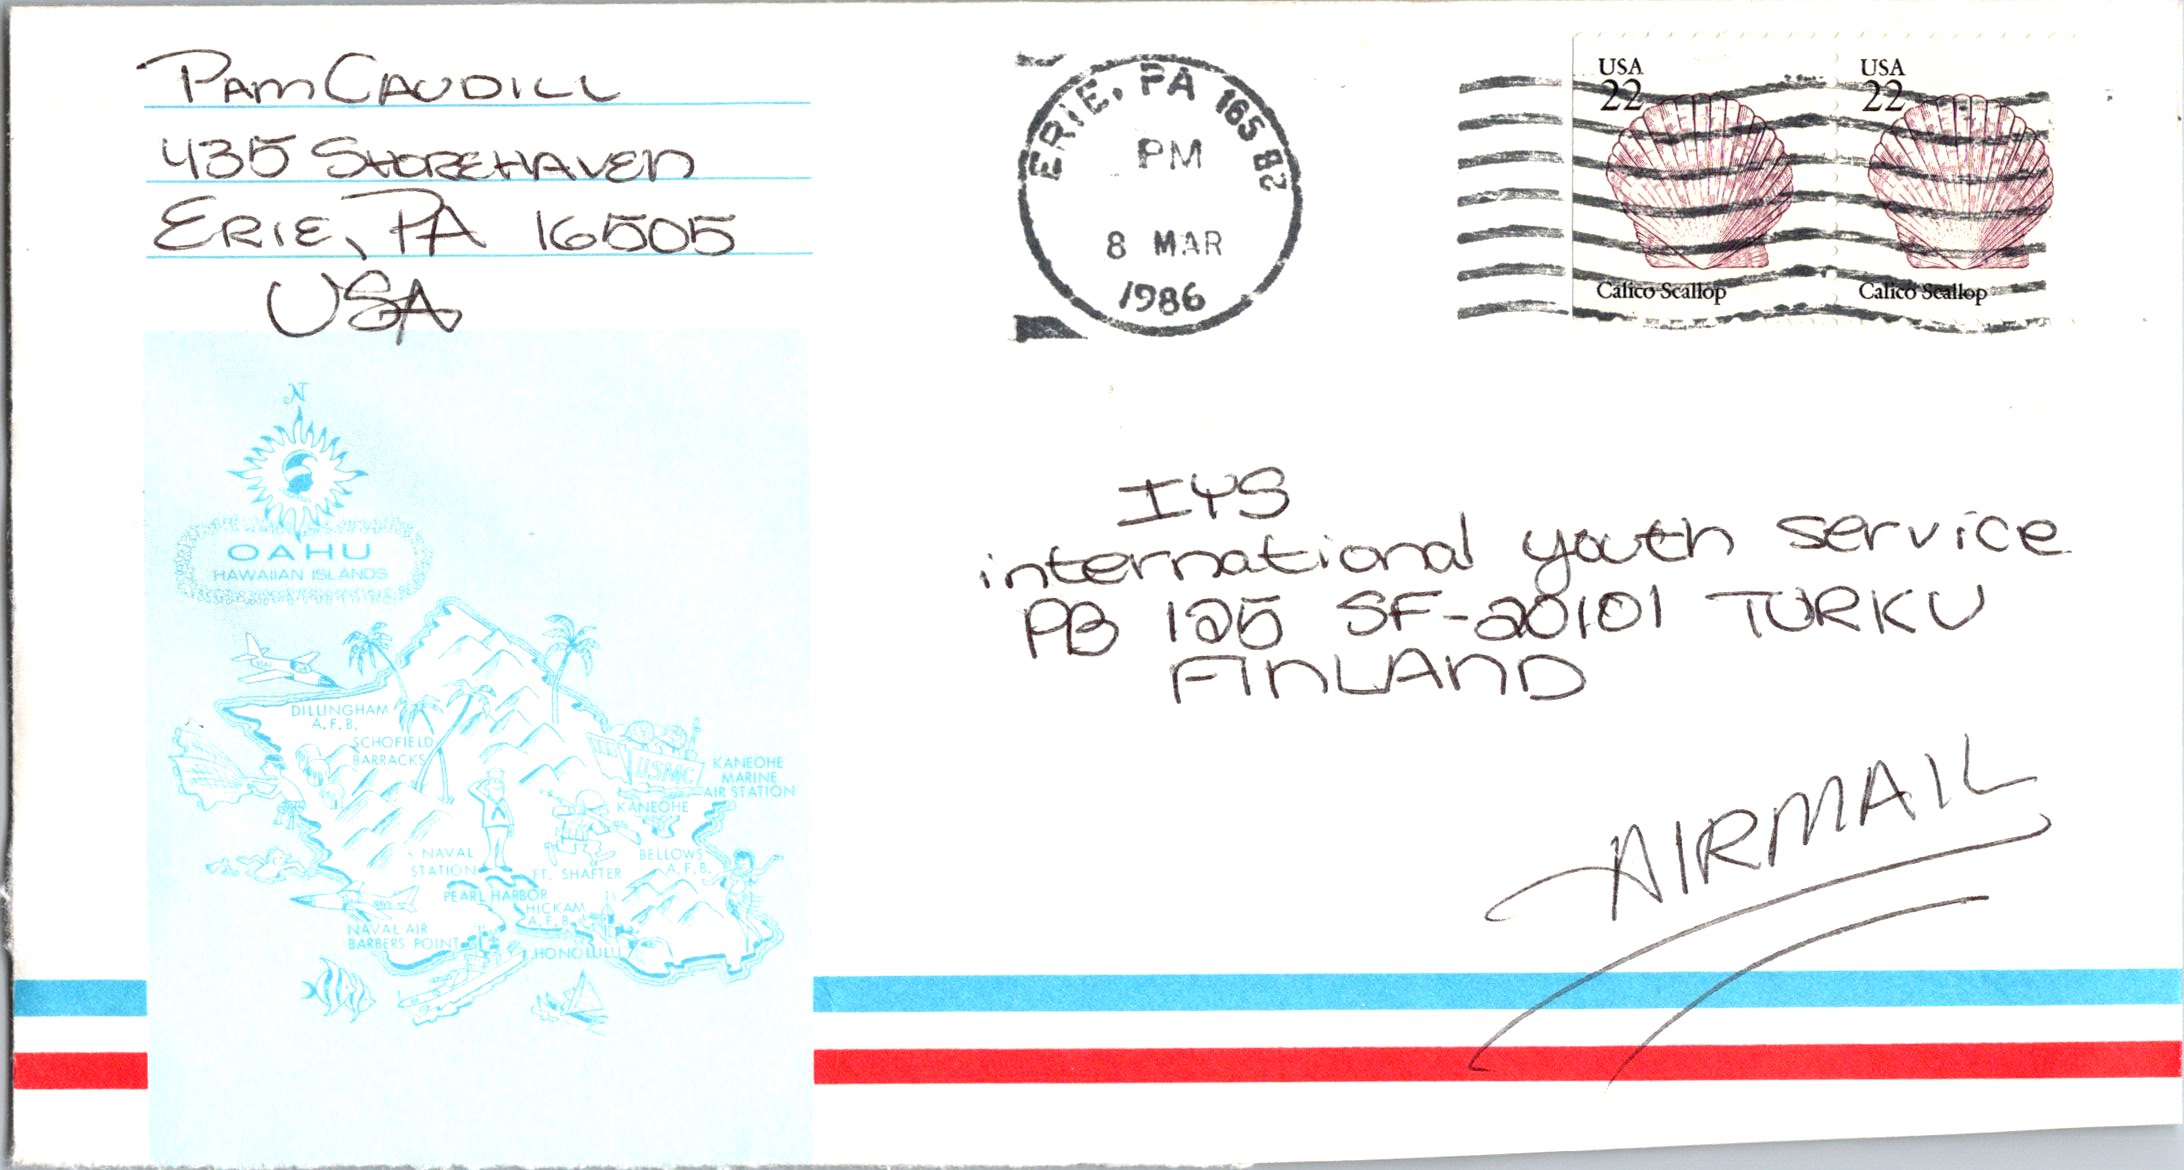 Pam Caudill
435 Shorehaven
Erie, PA 16505
USA
ERIE, PA 165 82
PM
8 MAR
1986
USA
22
Calico Scallop
USA
22
Calico Scallop
IYS
international youth service
PB 125 SF-20101 TURKU
FINLAND
AIRMAIL
N
OAHU
HAWAIIAN ISLANDS
DILLINGHAM
A.F.B.
SCHOFIELD
BARRACKS
USMC
KANEOHE
MARINE
AIR STATION
KANEOHE
NAVAL
STATION
FT. SHAFTER
BELLOWS
A.F.B.
PEARL HARBOR
HICKAM
A.F.B.
NAVAL AIR
BARBERS POINT
HONOLULU